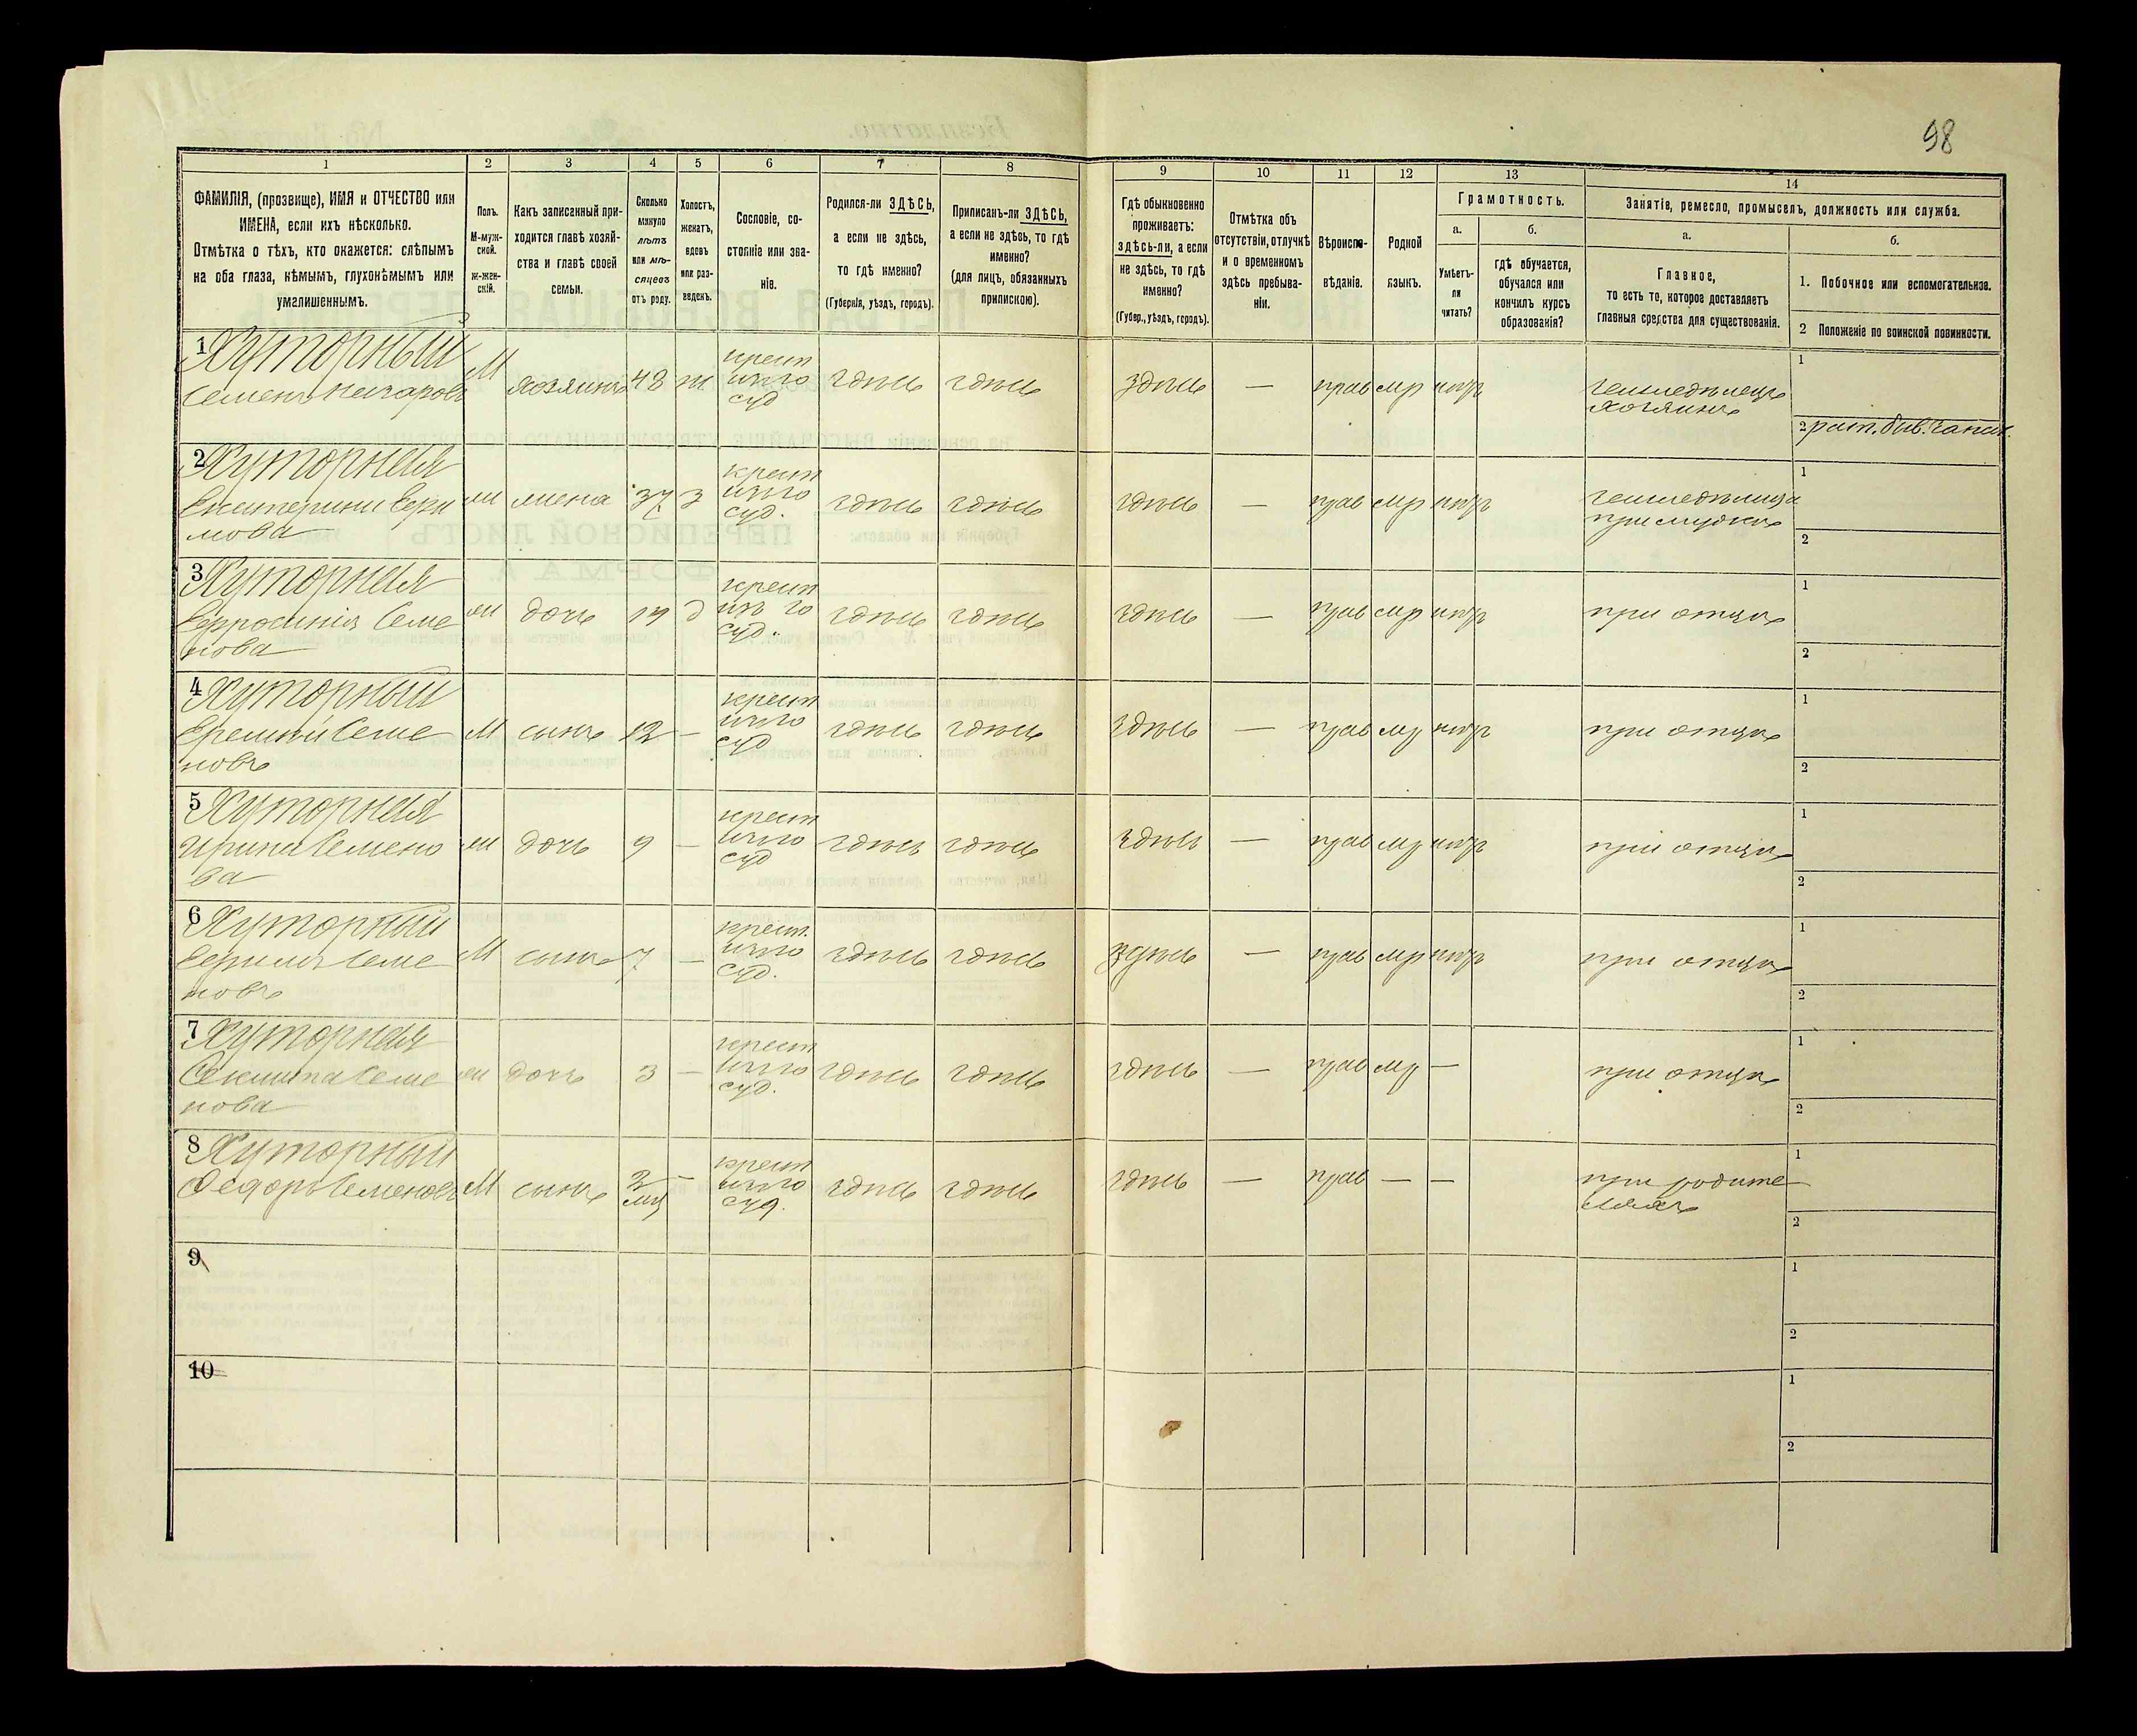 98
1 2 3 4 5 6 7 8 9 10 11 12 13 14
ФАМИЛІЯ, (прозвище), ИМЯ и ОТЧЕСТВО или
ИМЕНА, если ихъ нѣсколько.
Отмѣтка о тѣхъ, кто окажется: слѣпымъ
на оба глаза, нѣмымъ, глухонѣмымъ или
умалишеннымъ.
Полъ.
М-муж-
ской.
ж-жен-
скій.
Какъ записанный при-
ходится главѣ хозяй-
ства и главѣ своей
семьи.
Сколько
минуло
лѣтъ
или мѣ-
сяцевъ
отъ роду.
Холостъ,
женатъ,
вдовъ
или раз-
веденъ.
Сословіе, со-
стояніе или зва-
ніе.
Родился-ли ЗДѢСЬ,
а если не здѣсь,
то гдѣ именно?
(Губернія, уѣздъ, городъ).
Приписанъ-ли ЗДѢСЬ,
а если не здѣсь, то гдѣ
именно?
(для лицъ, обязанныхъ
припискою).
Гдѣ обыкновенно
проживаетъ:
здѣсь-ли, а если
не здѣсь, то гдѣ
именно?
(Губер., уѣздъ, городъ).
Отмѣтка объ
отсутствіи, отлучкѣ
и о временномъ
здѣсь пребыва-
ніи.
Вѣроиспо-
вѣданіе.
Родной
языкъ.
Грамотность.
а.
Умѣетъ-
ли
читать?
б.
гдѣ обучается,
обучался или
кончилъ курсъ
образованія?
Занятіе, ремесло, промыселъ, должность или служба.
а.
Главное,
то есть то, которое доставляетъ
главныя средства для существованія.
б.
1. Побочное или вспомогательное.
2 Положеніе по воинской повинности.
1 Хуторный
Семенъ М хозяинъ 48
крест
суд здѣсь здѣсь здѣсь — прав мр
земледѣлецъ
хозяинъ
1
2
2 Хуторная
Екатерина Ефи
мова жена 37 з
крест
суд. здѣсь здѣсь здѣсь — прав мр
при мужѣ
1
2
3 Хуторная
Ефросинія Семе
нова дочь д
крест
суд. здѣсь здѣсь здѣсь — прав мр
при отцѣ
1
2
4 Хуторный
Семе
новъ М сынъ 12 —
крест
суд здѣсь здѣсь здѣсь — прав мр
при отцѣ
1
2
5 Хуторная
Ирина Семено
ва дочь 9 —
крест
суд здѣсь здѣсь здѣсь — прав мр
при отцѣ
1
2
6 Хуторный
Семе
новъ М сынъ 7 —
крест.
суд. здѣсь здѣсь здѣсь — прав мр
при отцѣ
1
2
7 Хуторная
Семе
нова дочь 3 —
крест
суд. здѣсь здѣсь здѣсь — прав мр —
при отцѣ
1
2
8 Хуторный
Федоръ Семеновъ М сынъ —
крест
суд. здѣсь здѣсь здѣсь — прав — —
при родите
ляхъ
1
2
9
1
2
10
1
2